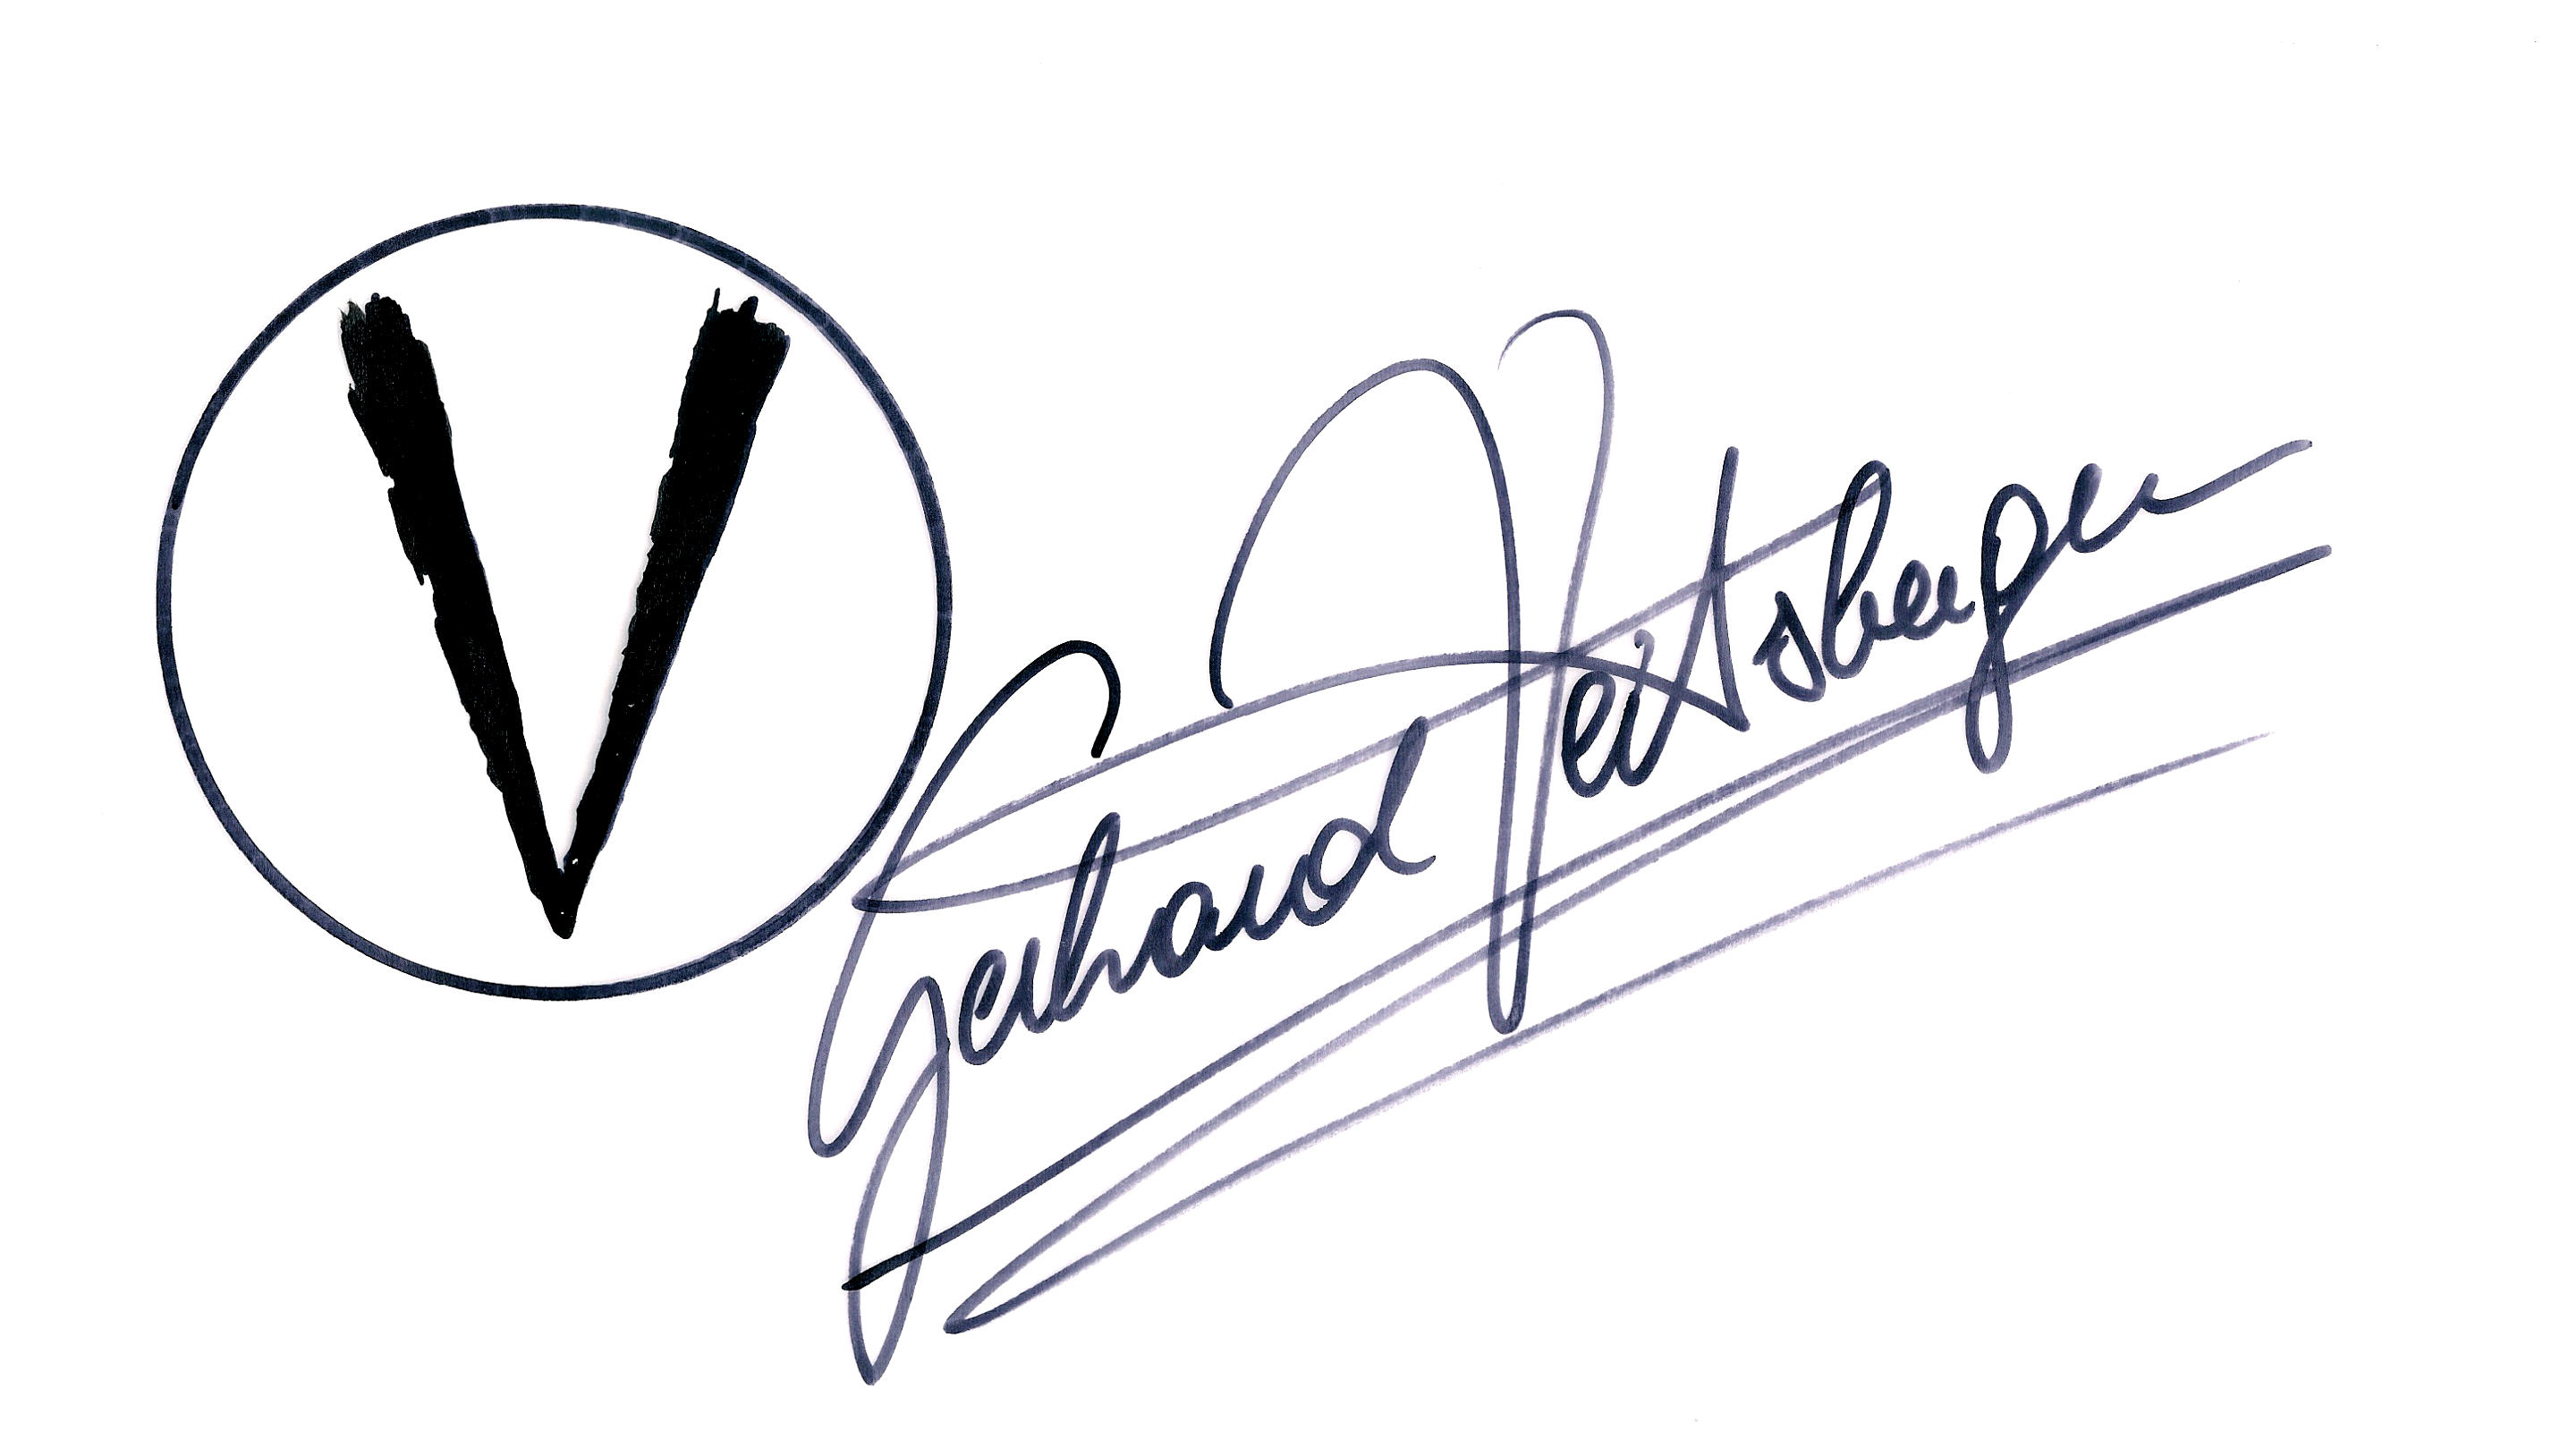 V
Gerhard Veitsberger